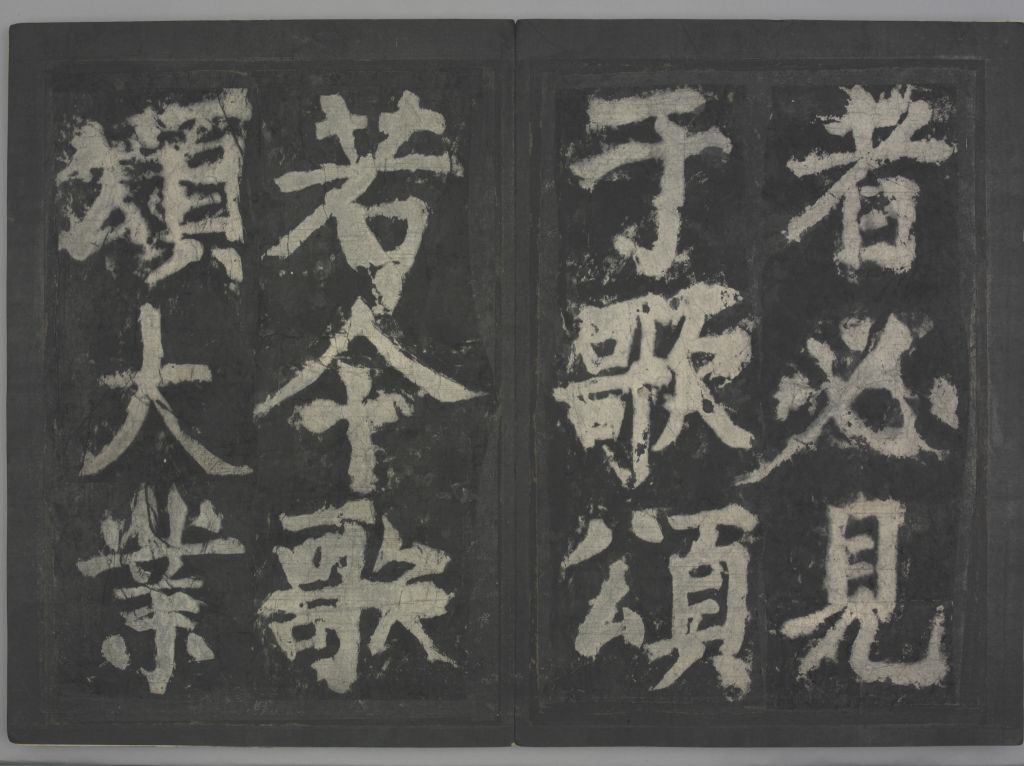 者必見
于歌頌
若今歌
頌大業